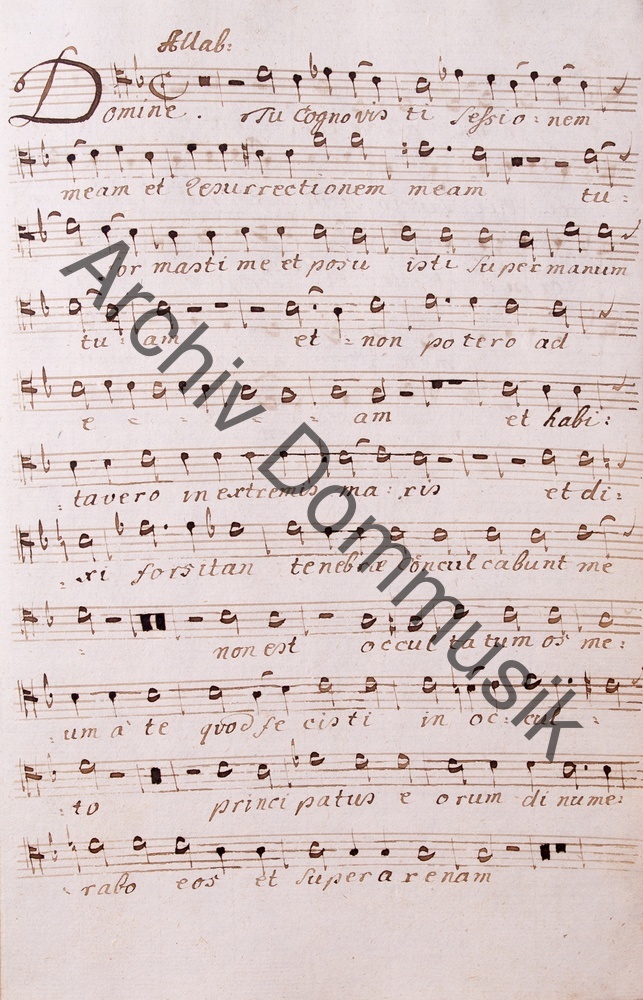 Allab:
Domine. Tu Cognovis ti sessio: nem
meam et Resurrectionem meam tu:
or masti me et posu isti super manum
tu: am et non potero ad
e - - - am et habi:
: tavero in extremis ma: ris et di:
: xi forsitan tenebræ Concul cabunt me
: non est occul tatum os me:
: um à te quod fe cisti in oc: cul:
: to princi patus e orum di nume:
: rabo eos et super a renam
Archiv Dommusik